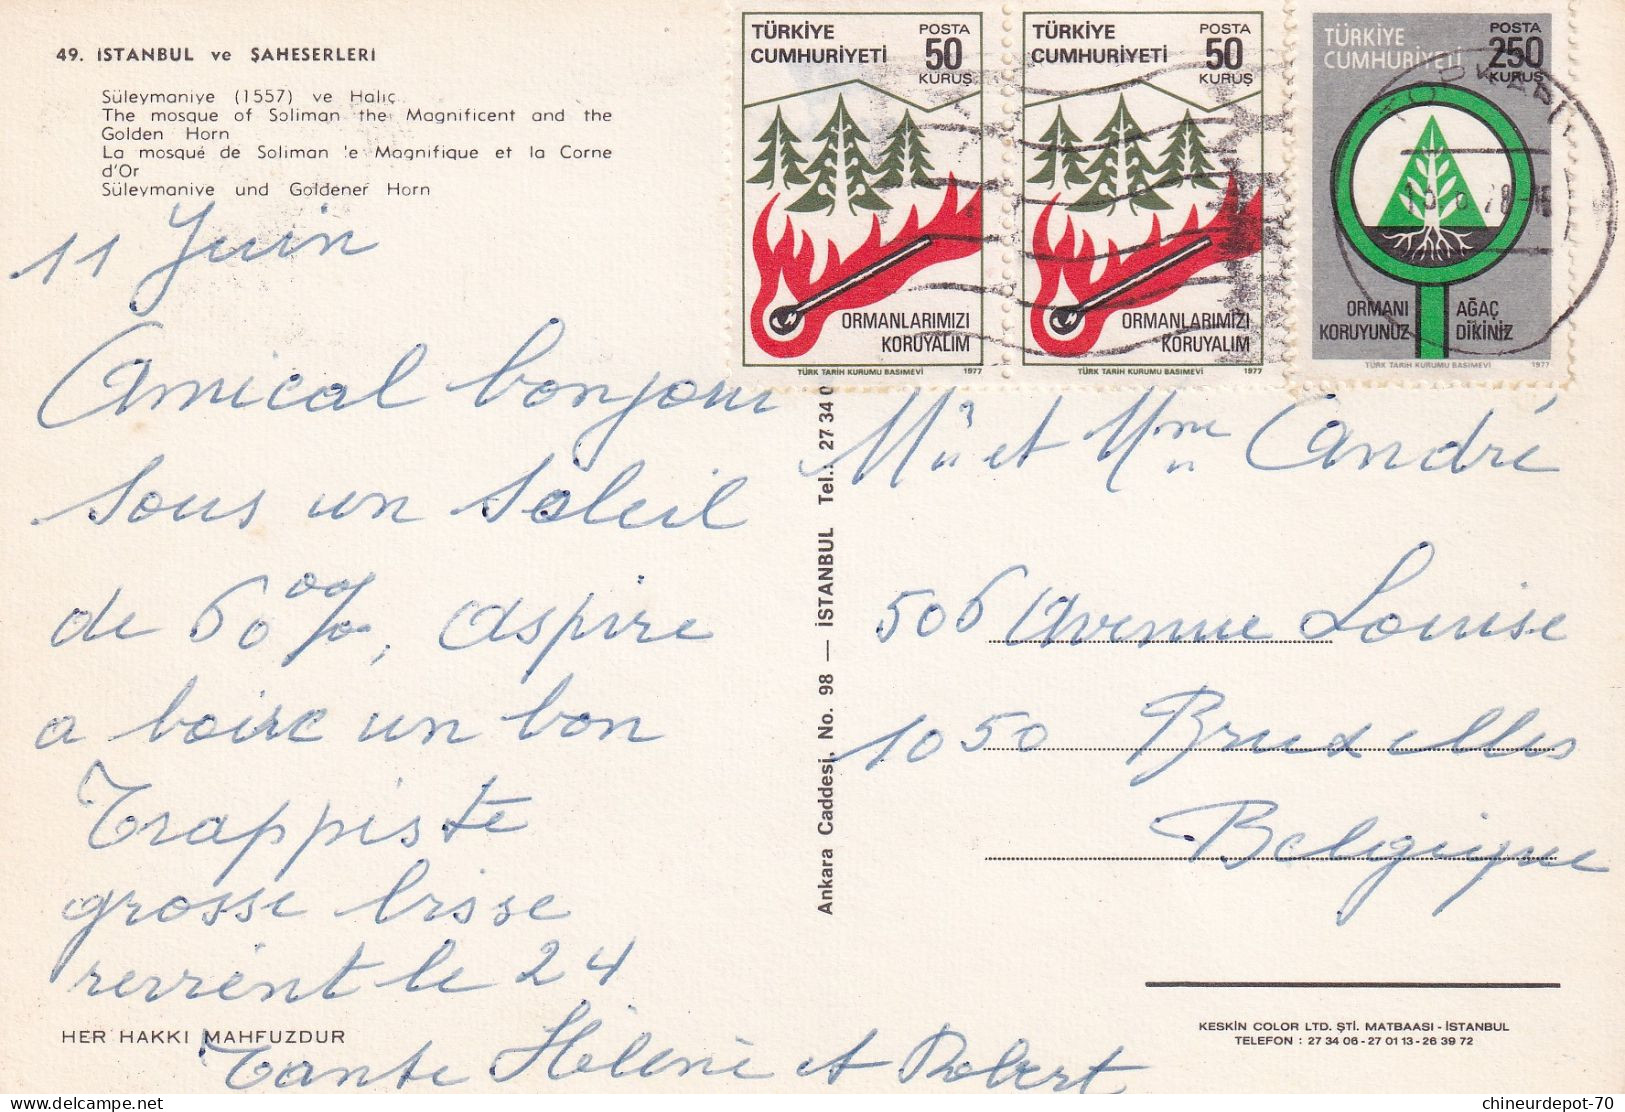 49. İSTANBUL ve ŞAHESERLERİ
Süleymaniye (1557) ve Haliç
The mosque of Soliman the Magnificent and the
Golden Horn
La mosqué de Soliman le Magnifique et la Corne
d'Or
Süleymaniye und Goldener Horn
TÜRKİYE
CUMHURİYETİ
POSTA
50
KURUŞ
ORMANLARIMIZI
KORUYALIM
TÜRK TARİH KURUMU BASIMEVİ 1977
TÜRKİYE
CUMHURİYETİ
POSTA
50
KURUŞ
ORMANLARIMIZI
KORUYALIM
TÜRK TARİH KURUMU BASIMEVİ 1977
TÜRKİYE
CUMHURİYETİ
POSTA
250
KURUŞ
ORMANI
KORUYUNUZ
AĞAÇ
DİKİNİZ
TÜRK TARİH KURUMU BASIMEVİ 1977
11 Juin
Amical bonjour
sous un soleil
de 60 %, aspire
a boire un bon
Trappiste
grosse bisse
revient le 24
Tante Hélène et Robert
Ankara Caddesi, No. 98 — İSTANBUL Tel.: 27 34 0
Mr et Mme André
506 Avenue Louise
1050 Bruxelles
Belgique
HER HAKKI MAHFUZDUR
KESKİN COLOR LTD. ŞTİ. MATBAASI - İSTANBUL
TELEFON : 27 34 06 - 27 01 13 - 26 39 72
chineurdepot-70